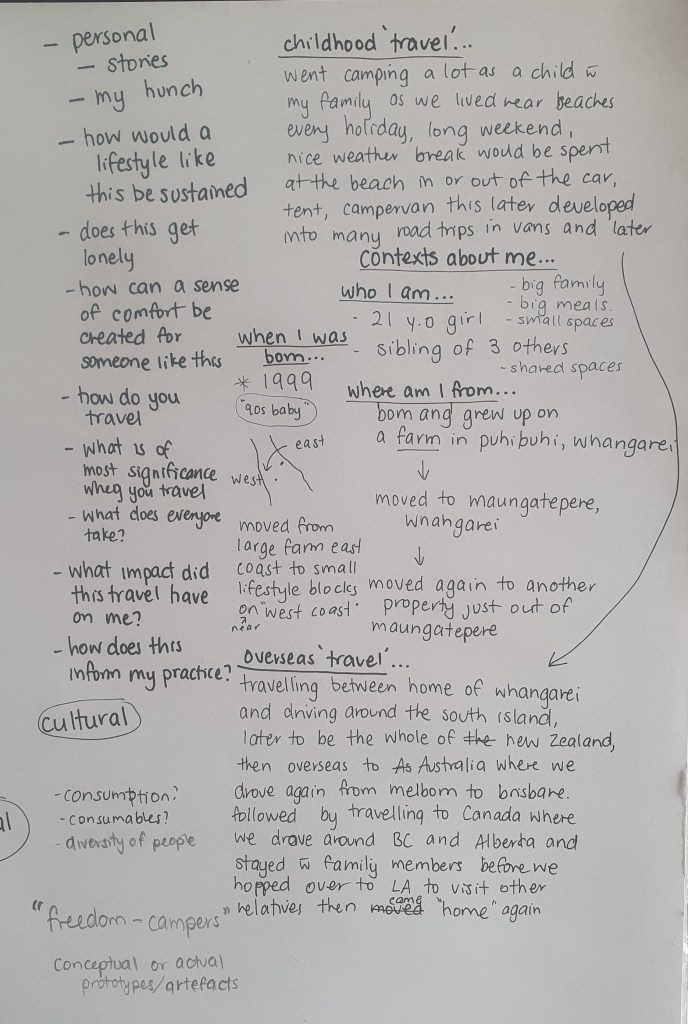 - personal
- stories
- my hunch
- how would a
lifestyle like
this be sustained
- does this get
lonely
- how can a sense
of comfort be
created for
someone like this
- how do you
travel
- what is of
most significance
when you travel
- what does everyone
take?
- what impact did
this travel have
on me?
- how does this
inform my practice?
cultural
- consumption?
- consumables?
- diversity of people
al
"freedom - campers"
conceptual or actual
prototypes/artefacts
childhood 'travel'...
went camping a lot as a child w̄
my family as we lived near beaches
every holiday, long weekend,
nice weather break would be spent
at the beach in or out of the car,
tent, campervan this later developed
into many road trips in vans and later
contexts about me...
who I am...
- 21 y.o girl
- sibling of 3 others
- big family
- big meals.
- small spaces
- shared spaces
when I was
born...
* 1999
"90s baby"
east
west
moved from
large farm east
coast to small
lifestyle blocks
on "west coast"
near
where am I from...
born and grew up on
a farm in puhibuhi, whangarei
↓
moved to maungatepere,
wnahgarei
↓
moved again to another
property just out of
maungatepere
overseas 'travel'...
travelling between home of whangarei
and driving around the south island,
later to be the whole of the new zealand,
then overseas to As Australia where we
drove again from melborn to brisbane.
followed by travelling to Canada where
we drove around BC and Alberta and
stayed w̄ family members before we
hopped over to LA to visit other
relatives then moved came "home" again